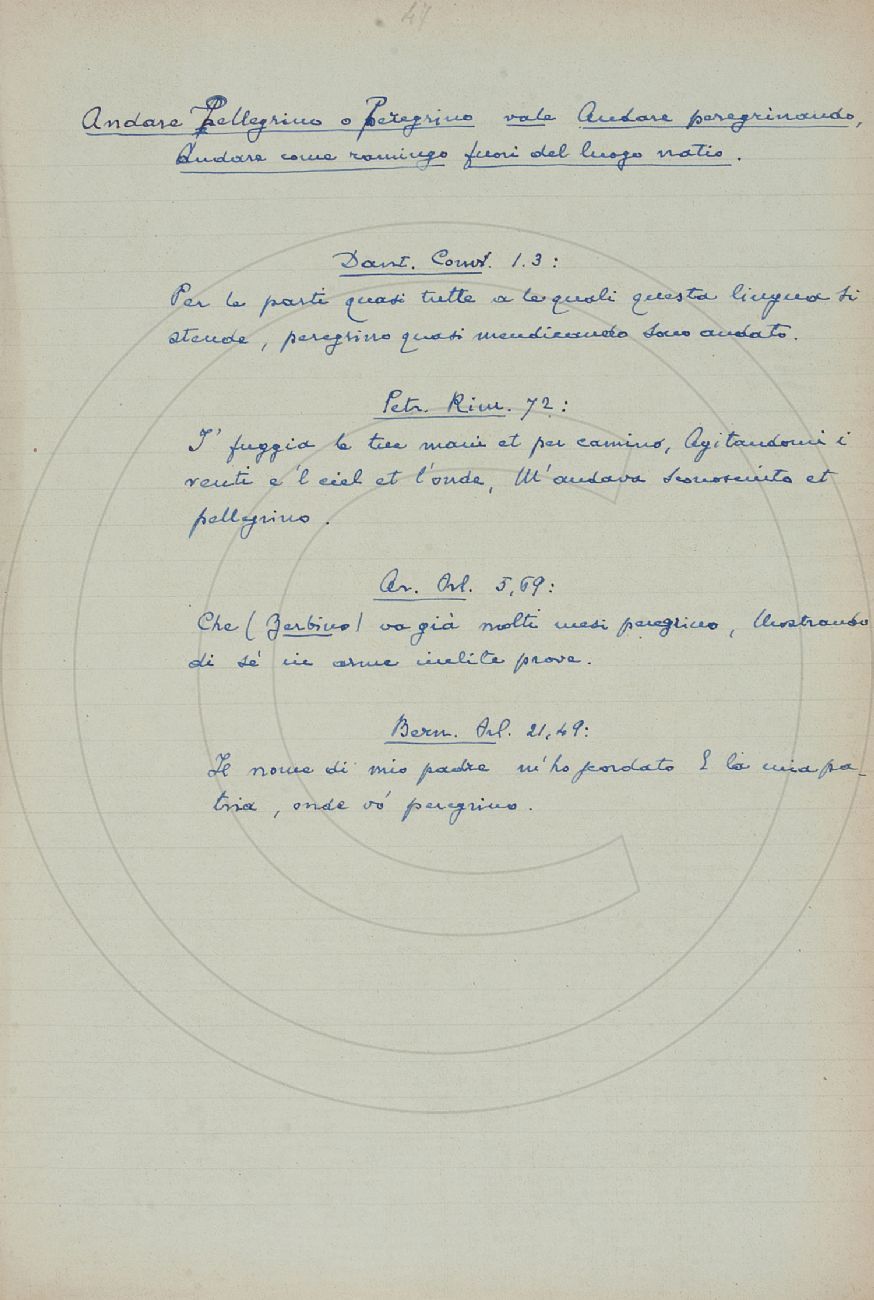 47
Andare Pellegrino o Peregrino vale Andare peregrinando,
Andare come ramingo fuori del luogo natio.
Dant. Conv. 1.3:
Per le parti quasi tutte a le quali questa lingua si
stende, peregrino quasi mendicando sono andato.
Petr. Rim. 72:
I' fuggia le tue mani et per camino, Agitandomi i
venti e 'l ciel et l'onde, M'andava sconosciuto et
pellegrino.
Ar. Orl. 5,69:
Che (Zerbino) va già molti mesi peregrino, Mostrando
di sé in arme inclite prove.
Bern. Orl. 21,49:
Il nome di mio padre m'ho scordato E la mia pa-
tria, onde vo' peregrino.